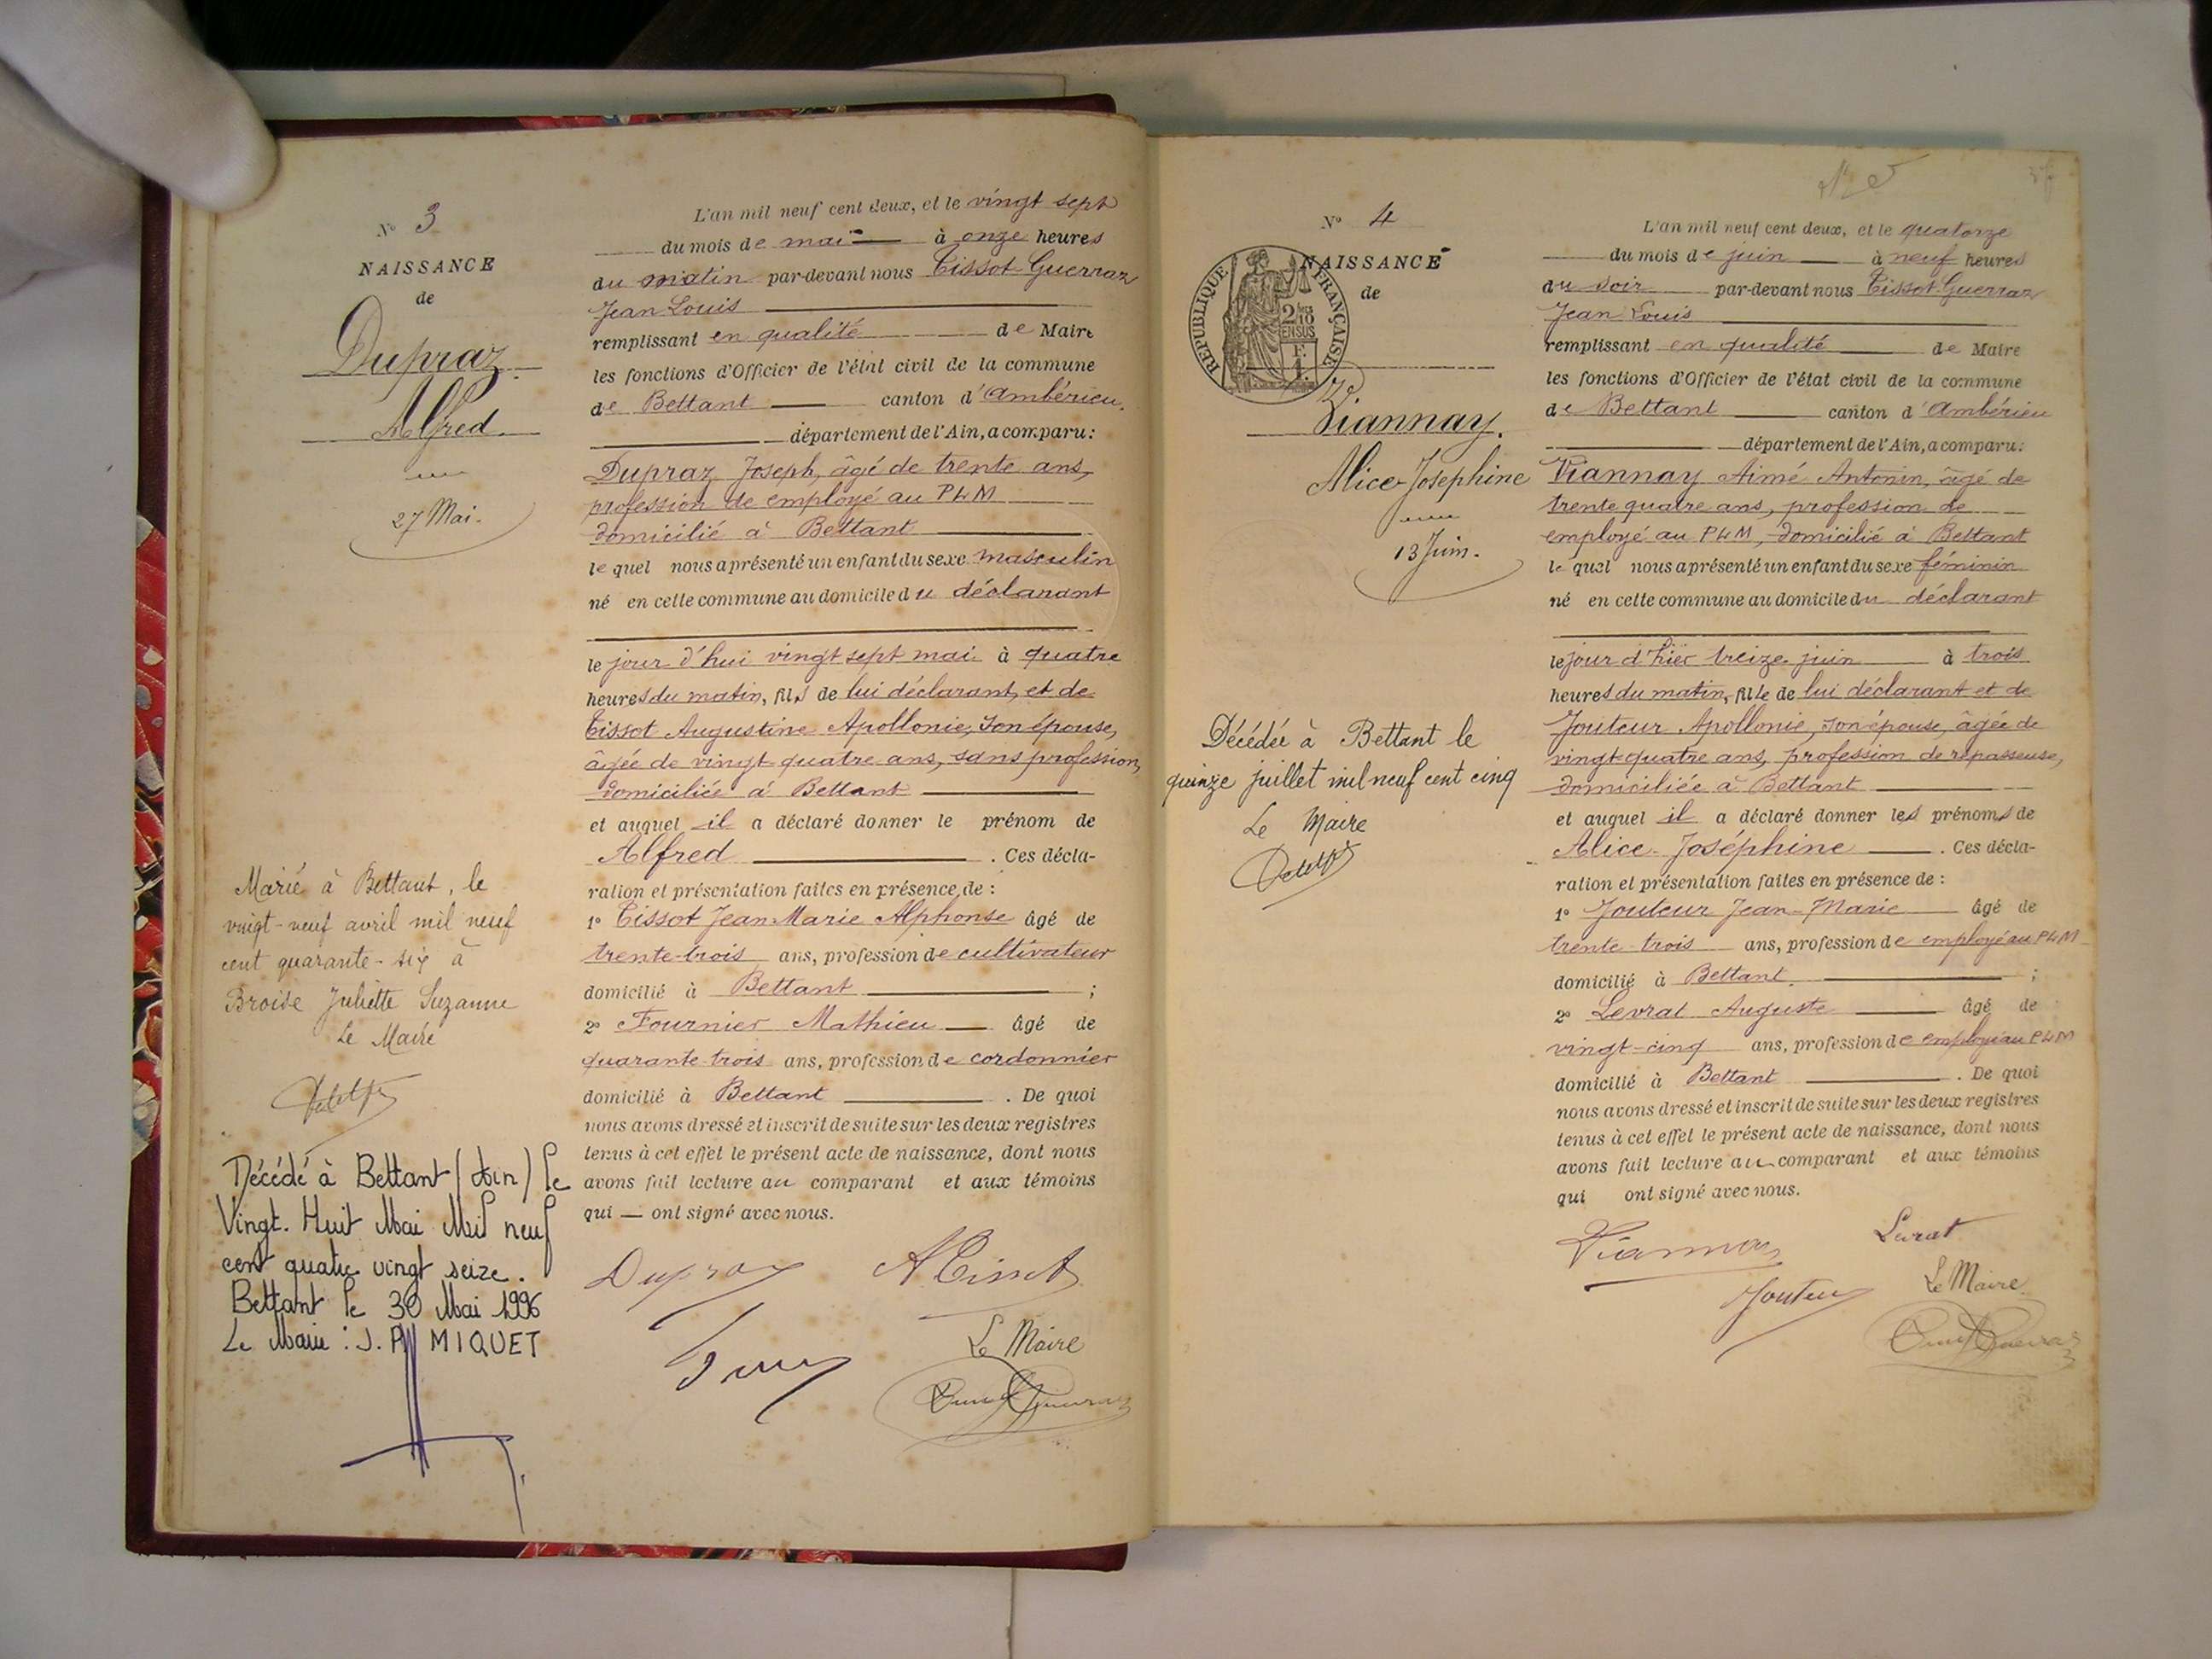 N° 3
NAISSANCE
de
Dupraz
Alfred
27 Mai.
Marié à Bettant, le
vingt-neuf avril mil neuf
cent quarante-six à
Broise Juliette Suzanne
Le Maire
Décédé à Bettant (Ain) le
Vingt. Huit Mai Mil neuf
cent quatre vingt seize.
Bettant le 30 Mai 1996
Le Maire : J. P MIQUET
L'an mil neuf cent deux, et le vingt sept
du mois de mai à onze heures
du matin par-devant nous Tissot-Guerraz
Jean Louis
remplissant en qualité de Maire
les fonctions d'Officier de l'état civil de la commune
de Bettant canton d'Ambérieu.
département de l'Ain, a comparu :
Dupraz Joseph, âgé de trente ans,
profession de employé au PLM
domicilié à Bettant
lequel nous a présenté un enfant du sexe masculin
né en cette commune au domicile du déclarant
le jour d'hui vingt sept mai à quatre
heures du matin, fils de lui déclarant, et de
Tissot Augustine Apollonie, son épouse,
âgée de vingt quatre ans, sans profession,
domiciliée à Bettant
et auquel il a déclaré donner le prénom de
Alfred . Ces décla-
ration et présentation faites en présence de :
1° Tissot Jean-Marie Alphonse âgé de
trente-trois ans, profession de cultivateur
domicilié à Bettant ;
2° Fournier Mathieu âgé de
quarante-trois ans, profession de cordonnier
domicilié à Bettant . De quoi
nous avons dressé et inscrit de suite sur les deux registres
tenus à cet effet le présent acte de naissance, dont nous
avons fait lecture au comparant et aux témoins
qui — ont signé avec nous.
Dupraz A Tissot
Le Maire
N° 4
NAISSANCE
de
REPUBLIQUE FRANÇAISE
2/10 EN SUS
Viannay.
Alice-Josephine
13 Juin.
Décédée à Bettant le
quinze juillet mil neuf cent cinq
Le Maire
L'an mil neuf cent deux, et le quatorze
du mois de juin à neuf heures
du soir par-devant nous Tissot-Guerraz
Jean Louis
remplissant en qualité de Maire
les fonctions d'Officier de l'état civil de la commune
de Bettant canton d'Ambérieu
département de l'Ain, a comparu :
Viannay Aimé Antonin, âgé de
trente quatre ans, profession de
employé au PLM, domicilié à Bettant
lequel nous a présenté un enfant du sexe féminin
né en cette commune au domicile du déclarant
le jour d'hier treize juin à trois
heures du matin, fille de lui déclarant et de
Jouteur Apollonie, son épouse, âgée de
vingt-quatre ans, profession de repasseuse,
domiciliée à Bettant
et auquel il a déclaré donner les prénoms de
Alice-Joséphine . Ces décla-
ration et présentation faites en présence de :
1° Jouteur Jean-Marie âgé de
trente-trois ans, profession de employé au PLM
domicilié à Bettant ;
2° Levrat Auguste âgé de
vingt-cinq ans, profession de employé au PLM
domicilié à Bettant . De quoi
nous avons dressé et inscrit de suite sur les deux registres
tenus à cet effet le présent acte de naissance, dont nous
avons fait lecture au comparant et aux témoins
qui ont signé avec nous.
Viannay Levrat
Jouteur Le Maire